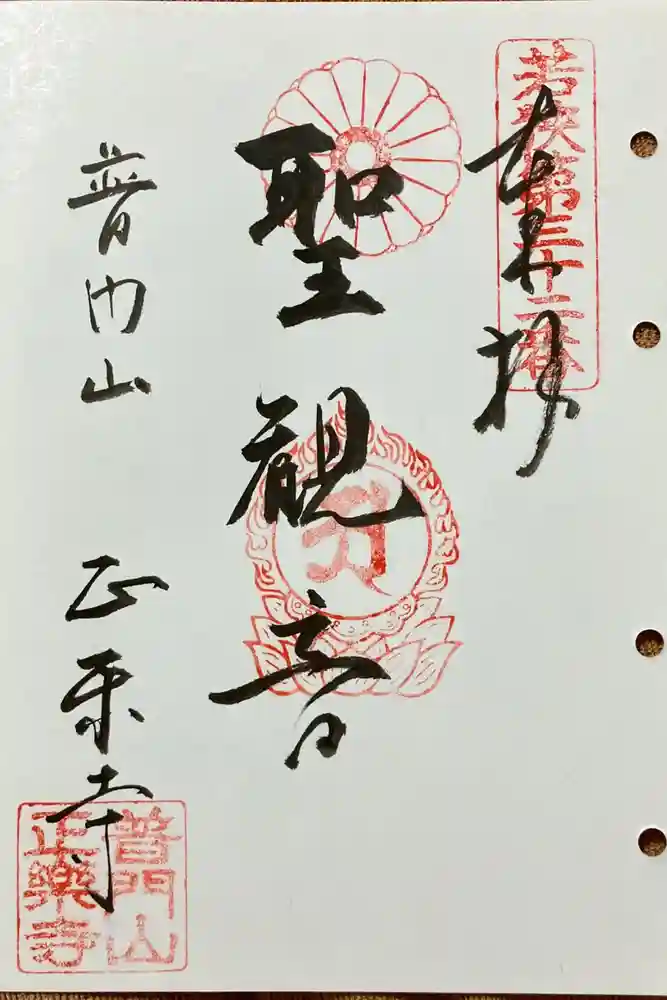 若狭第三十二番
奉拝
聖観音
普門山 正楽寺
普門山
正樂寺